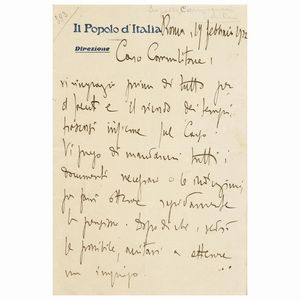 Il Popolo d'Italia
Roma, 14 febbraio 1922
Direzione
Caro Commilitone,
vi ringrazio prima di tutto per
e il ricordo dei tempi
trascorsi insieme sul Carso.
Vi prego di mandarmi tutti i
documenti necessari o le indicazioni
per farvi ottenere rapidamente
la pensione. Dopo di che, vedrò
se possibile, aiutarvi a ottenere
un impiego.